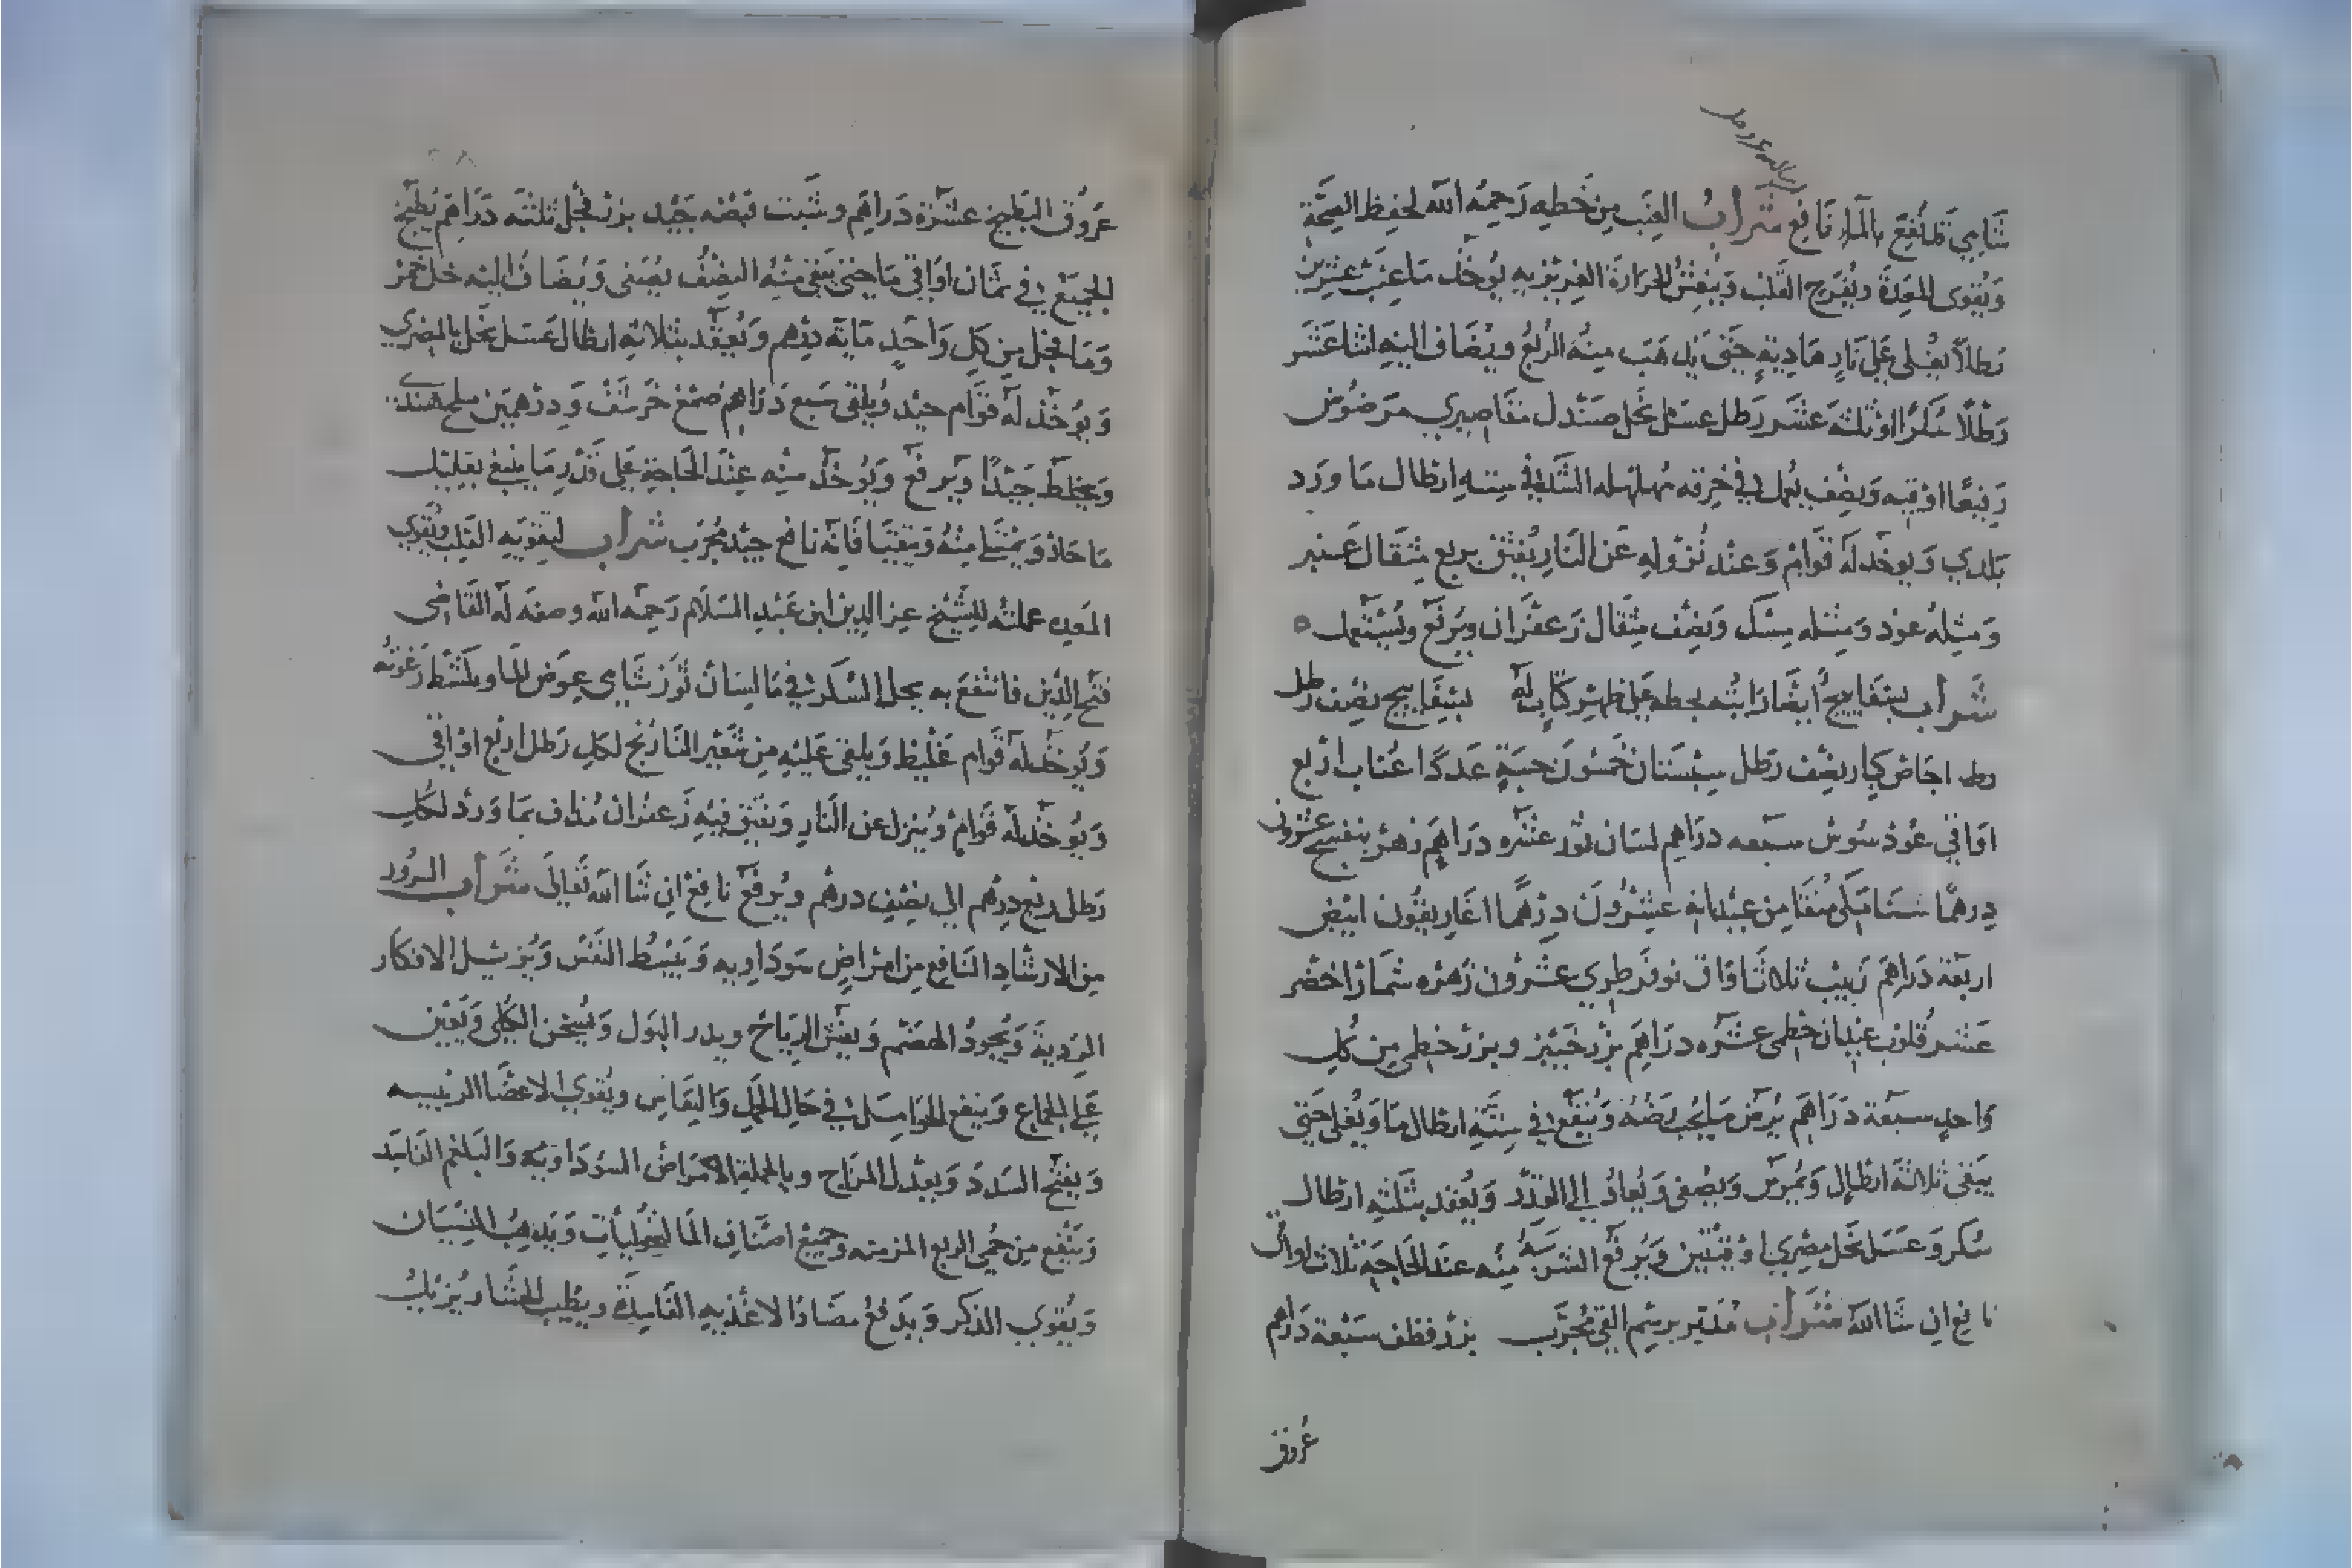 شامي قد نقع بالماء نافع شراب العنب من خطه رحمه الله لحفظ الصحة
ويقوى المعدة ويفرح القلب وينعش الحرارة الغريزيه يوخذ ماء عنب عشرين
رطلاً يغلى على نار هادية حتى يذهب منه الربع ويضاف اليه اثنا عشر
رطلًا سكرًا او ثلثة عشر رطل عسل نحل صندل مقاصيري مرضوض
ربعا اوقيه ونصف يعمل في خرقه مهلهله الشد في ستة ارطال ما ورد
بلدي ويوخذ له قوام وعند نزوله عن النار يفتق بربع مثقال عنبر
ومثله عود ومثله مسك ونصف مثقال زعفران ويرفع ويستعمل
شراب بسفايج أيضًا رايته بخطه على ظهر كتاب له بسفايج نصف رطل
رطل اجاص كبار نصف رطل سبستان خمسون حبة عددا عناب اربع
اواقي عود سوس سبعه دراهم لسان ثور عشره دراهم زهر بنفسج عشرون
درهمًا سنا مكي منقا من عيدانه عشرون درهما اغاريقون ابيض
اربعة دراهم زبيب ثلاث اواق نوفر طري عشرون زهره شمار اخضر
عشر قلوب عيدان خطمى عشره دراهم بزر خبيز وبزر خطمي من كل
واحد سبعة دراهم يرض ما يجب رضه وينقع في ستة ارطال ما ويغلى حتى
يبقى ثلاثة ارطال ويمرس ويصفى ويعاد إلى القدر ويعقد بثلثه ارطال
سكر وعسل نحل مصري اوقيتين ويرفع الشربة منه عند الحاجة ثلاث اواق
نافع ان شا الله شراب مدبر برسم القي مجرب بزر قطف سبعة دراهم
عروق
عروق البطيخ عشرة دراهم وشبت قبضه جيد بزر فجل ثلثه دراهم يطبخ
الجميع في ثمان اواقي ما حتى يبقى منه النصف يصفى ويضاف اليه خل خمر
وما فجل من كل واحد مايه درهم ويعقد بثلاثه ارطال عسل نحل بالمصري
ويوخذ له قوام جيد ويلقى سبع دراهم صمغ خرشف ودرهمين ملح هندي
ويخلط جيدًا ويرفع ويوخذ منه عند الحاجة على قدر ما ينبغي بقليل
ما حار ويمتلي منه ويتقيا فانه نافع جيد مجرب شراب لتقويه القلب ويقوي
المعده عملته للشيخ عز الدين ابن عبد السلام رحمه الله وصفه له القاضى
فتح الدين فانتفع به يحل السكر في ما لسان ثور شامي عوض الما ويكشط رغوته
ويوخذ له قوام غليظ ويلقى عليه من شعير النارنج لكل رطل اربع اواقي
ويوخذ له قوام وينزل عن النار ويفتق فيه زعفران مداف بما ورد لكل
رطل ربع درهم الى نصف درهم ويرفع نافع ان شا الله تعالى شراب الورد
من الارشاد النافع من امراض سوداويه ويبسط النفس ويزيل الافكار
الردية ويجود الهضم ويفش الرياح ويدر البول ويسخن الكلى ويعين
على الجماع وينفع الحوامل في حال الحمل والنفاس ويقوي الاعضا الرئيسيه
ويفتح السدد ويعدل المزاج وبالجملة الامراض السوداويه والبلغم الفاسد
وينفع من حمى الربع المزمنه وجميع اصناف المالنخوليات ويذهب النسيان
ويقوي الذكر ويدفع مضار الاغذيه الفاسدة ويطيب الجشا ويزيل